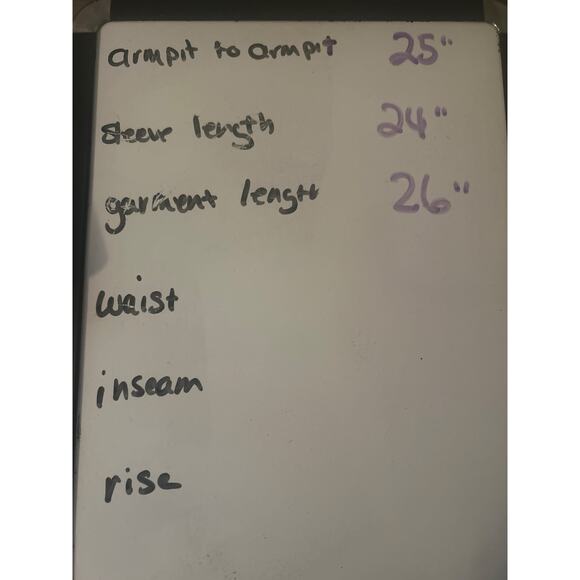 armpit to armpit 25"
sleeve length 24"
garment length 26"
waist
inseam
rise